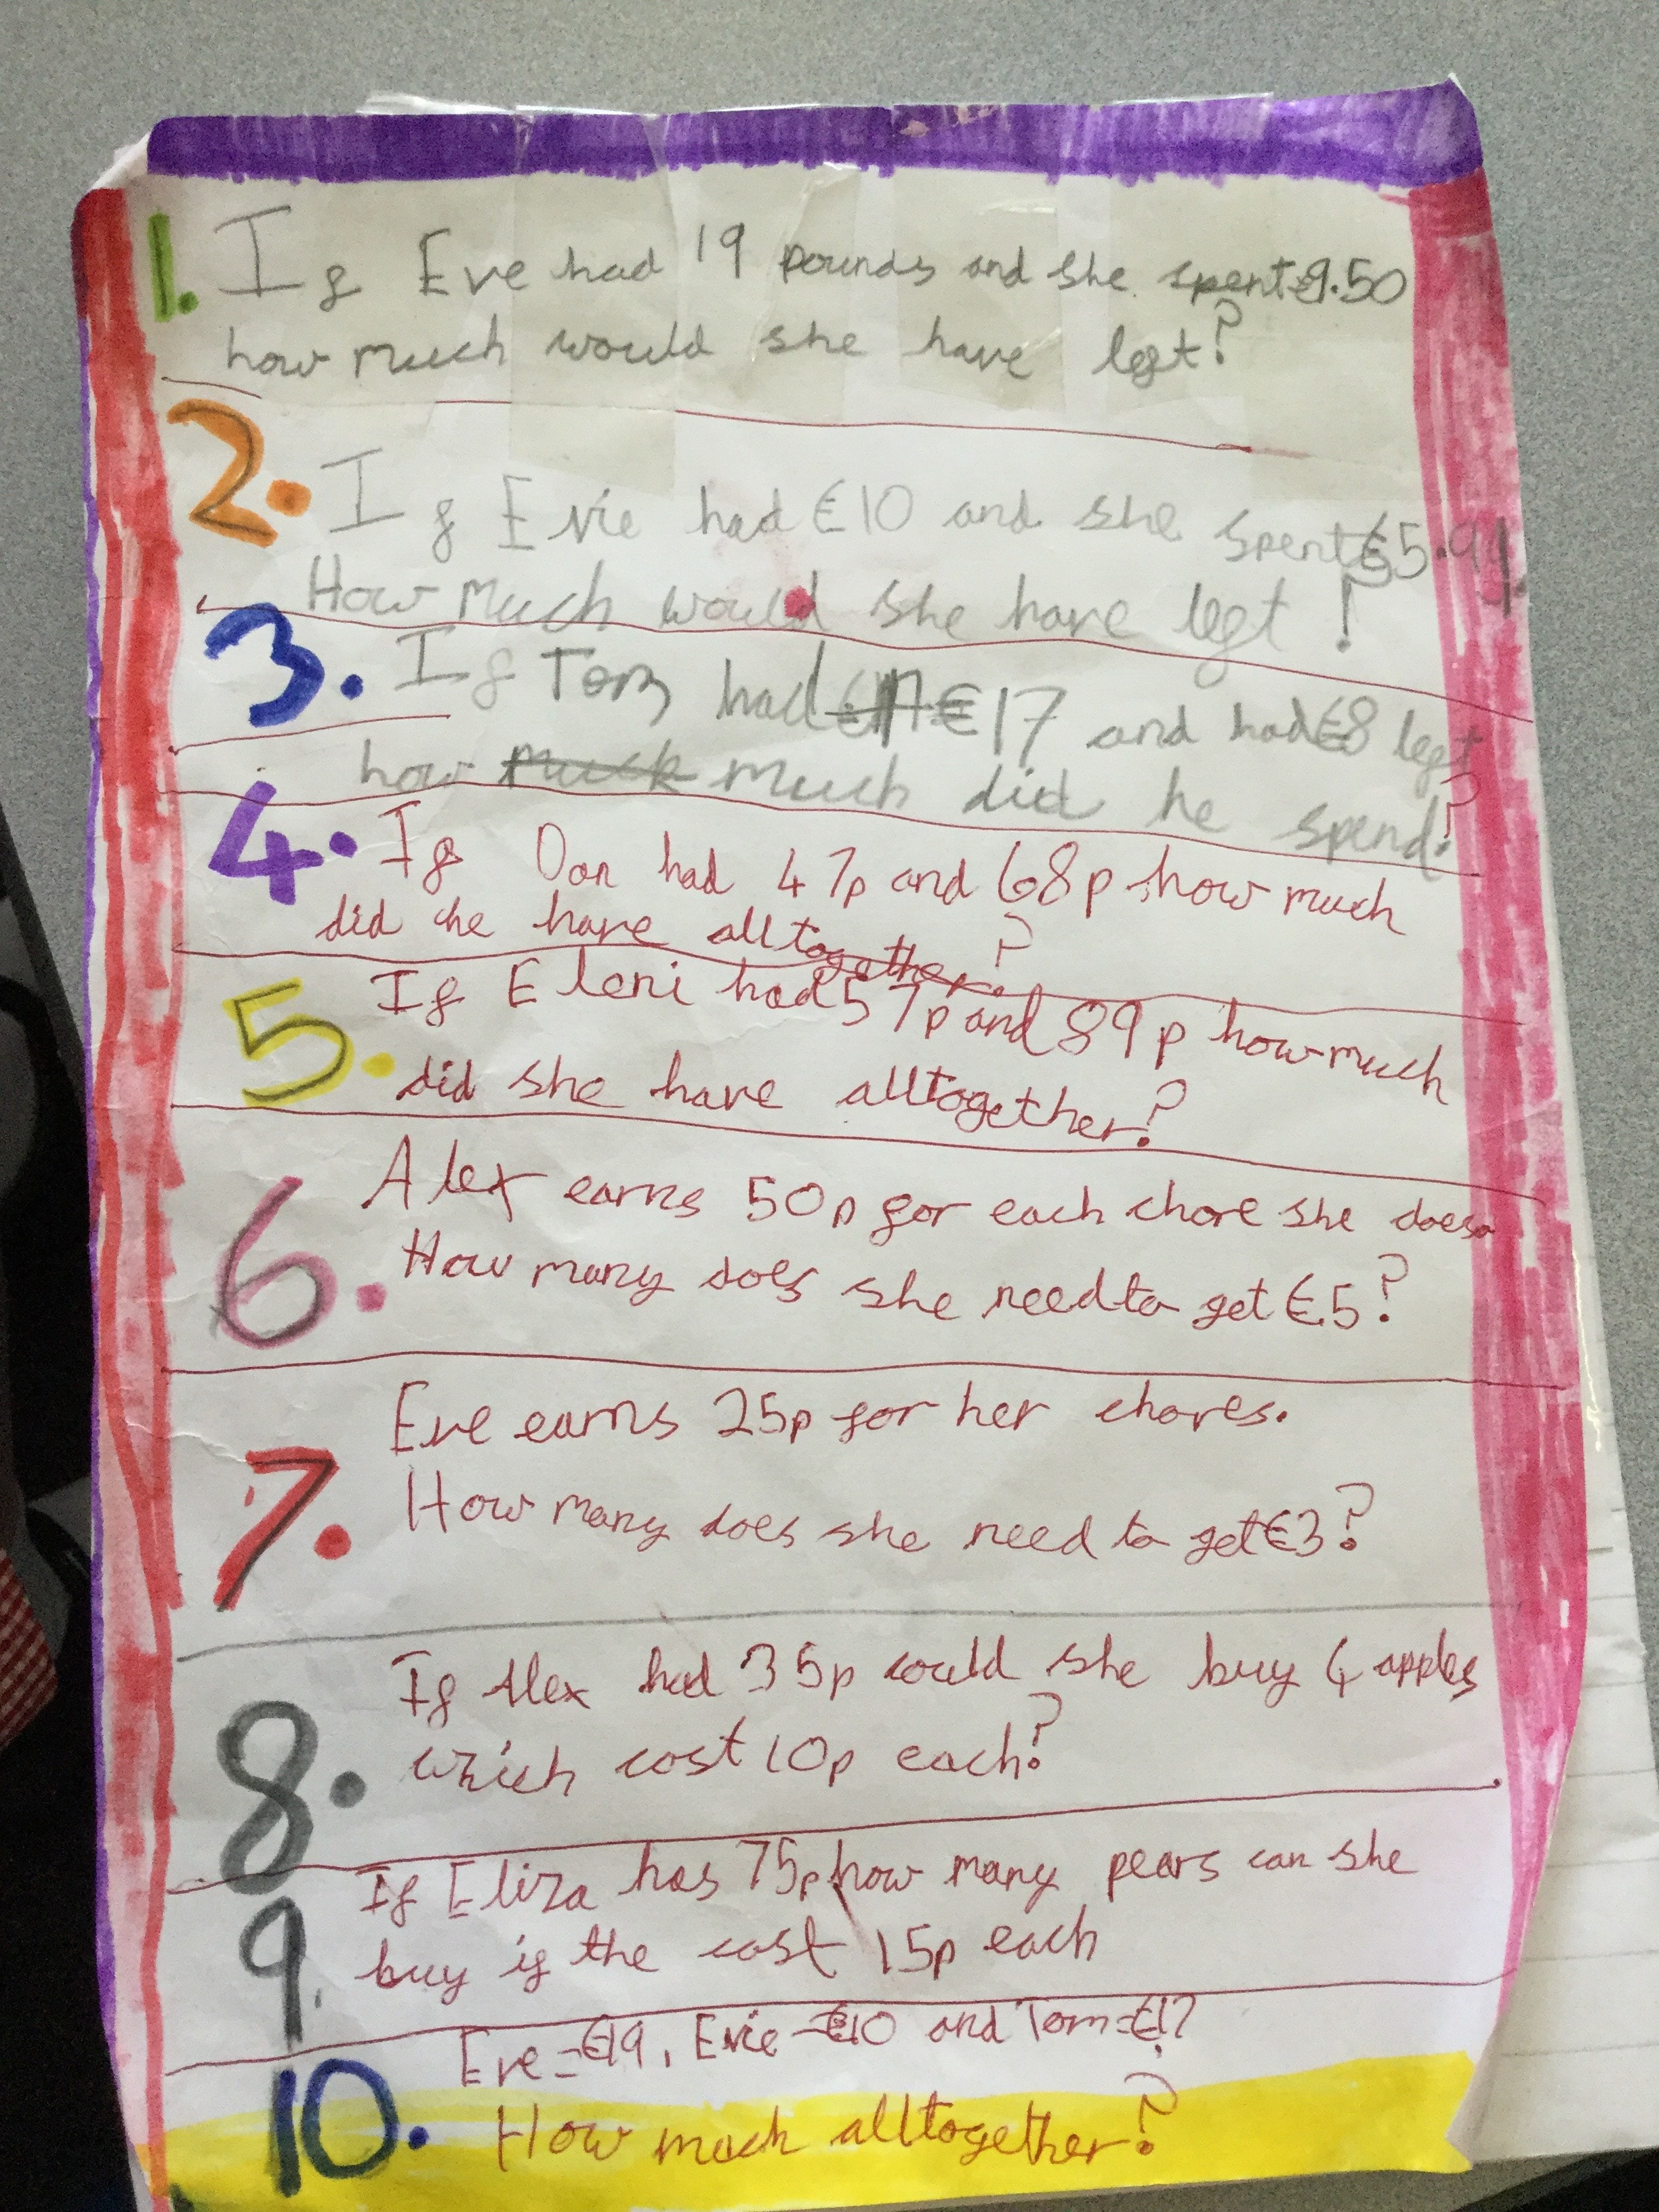 1. If Eve had 19 pounds and she spent €9.50
how much would she have left?
2. If Evie had €10 and she spent €5.91.
How much would she have left?
3. If Tom had €17 and had €8 left
how much did he spend?
4. If Dan had 47p and 68p how much
did he have alltogether?
5. If Eleni had 57p and 89p how much
did she have alltogether?
6. Alex earns 50p for each chore she does.
How many does she need to get €5?
7. Eve earns 25p for her chores.
How many does she need to get €3?
8. If Alex had 35p could she buy 4 apples
which cost 10p each?
9. If Eliza has 75p how many pears can she
buy if the cost 15p each
10. Eve=€19, Evie=€10 and Tom=€17
How much alltogether?